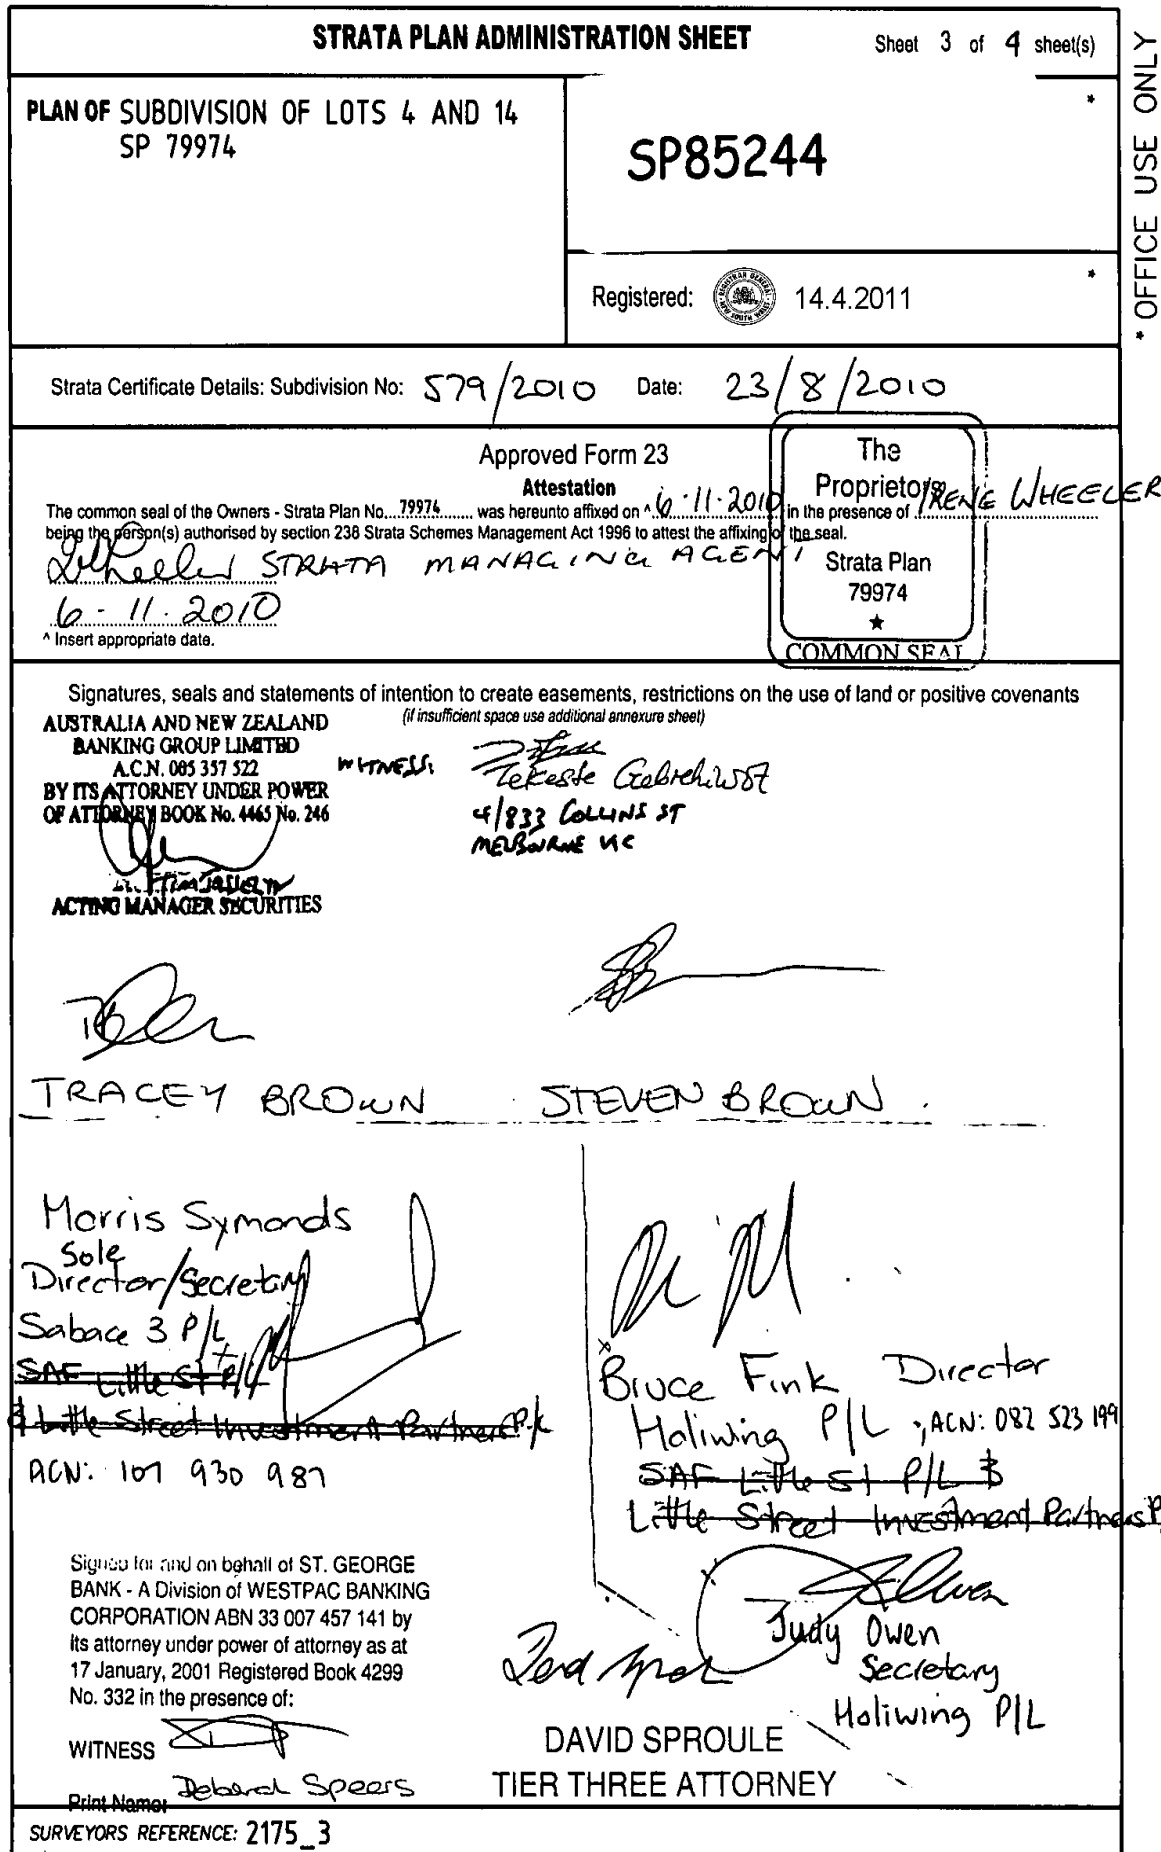 STRATA PLAN ADMINISTRATION SHEET
Sheet 3 of 4 sheet(s)
* OFFICE USE ONLY
PLAN OF SUBDIVISION OF LOTS 4 AND 14
SP 79974
*
SP85244
*
Registered: 14.4.2011
REGISTRAR GENERAL
NEW SOUTH WALES
Strata Certificate Details: Subdivision No: 579/2010 Date: 23/8/2010
Approved Form 23
Attestation
The common seal of the Owners - Strata Plan No. 79974 was hereunto affixed on ^ 6.11.2010 in the presence of IRENE WHEELER
being the person(s) authorised by section 238 Strata Schemes Management Act 1996 to attest the affixing of the seal.
The
Proprietors
Strata Plan
79974
★
COMMON SEAL
STRATA MANAGING AGENT
6-11.2010
^ Insert appropriate date.
Signatures, seals and statements of intention to create easements, restrictions on the use of land or positive covenants
(if insufficient space use additional annexure sheet)
AUSTRALIA AND NEW ZEALAND
BANKING GROUP LIMITED
A.C.N. 005 357 522
BY ITS ATTORNEY UNDER POWER
OF ATTORNEY BOOK No. 4465 No. 246
ACTING MANAGER SECURITIES
WITNESS:
Tekeste Gebrehiwot
4/833 COLLINS ST
MELBOURNE VIC
TRACEY BROWN
STEVEN BROWN
Morris Symonds
Sole
Director/Secretary
Sabace 3 P/L
SAF Little St P/L
& Little Street Investment Partners P/L
ACN: 107 930 987
Bruce Fink Director
Holiwing P/L ; ACN: 082 523 199
SAF Little St P/L &
Little Street Investment Partners P
Judy Owen
Secretary
Holiwing P/L
Signed for and on behalf of ST. GEORGE
BANK - A Division of WESTPAC BANKING
CORPORATION ABN 33 007 457 141 by
its attorney under power of attorney as at
17 January, 2001 Registered Book 4299
No. 332 in the presence of:
WITNESS
Print Name: Deborah Speers
DAVID SPROULE
TIER THREE ATTORNEY
SURVEYORS REFERENCE: 2175_3